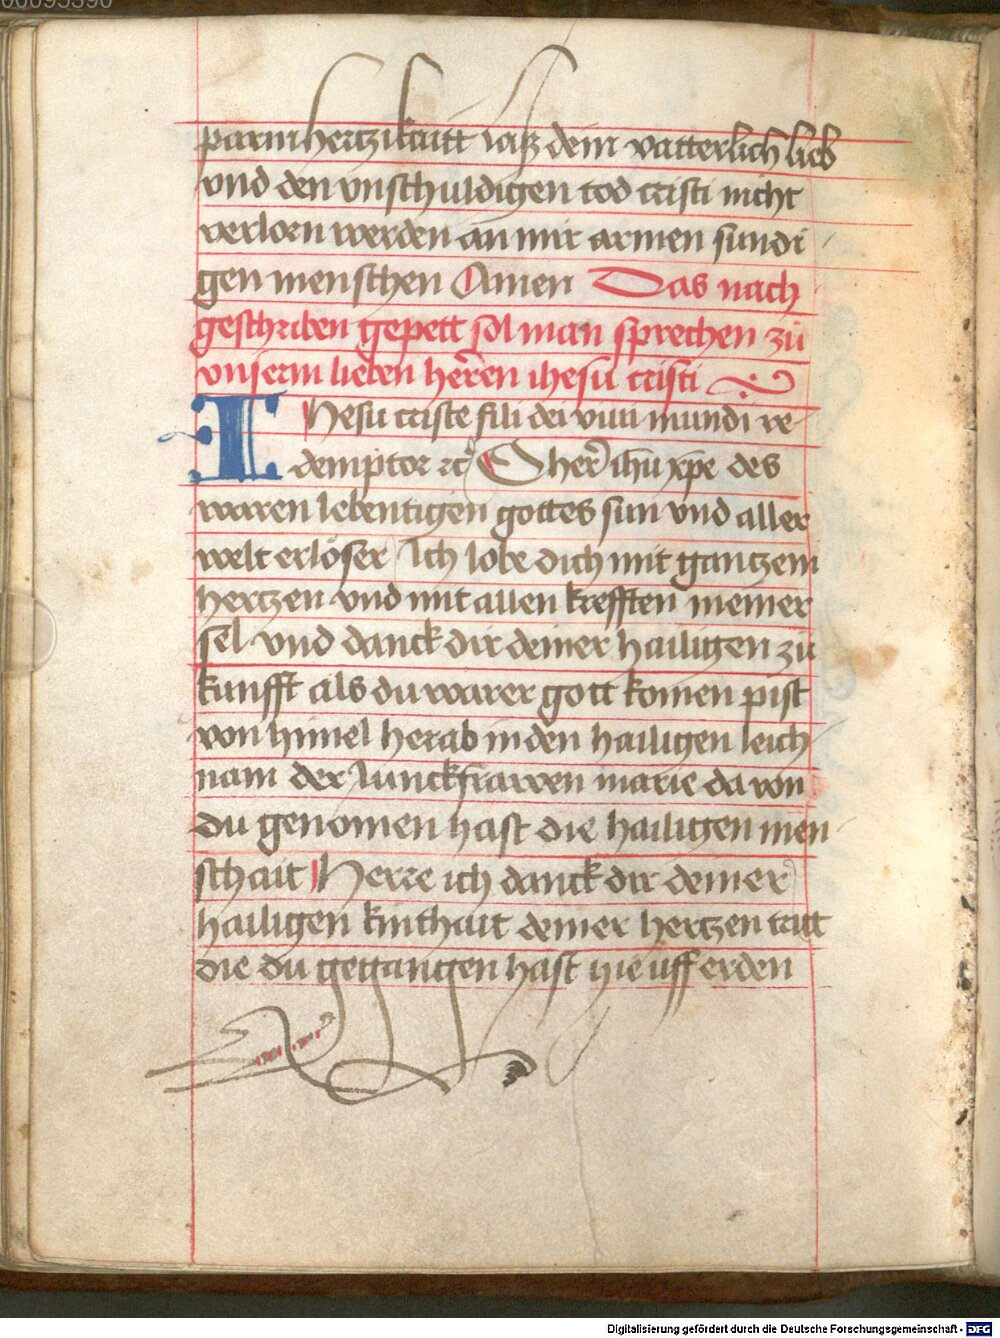 00095390
parmhertzikaitt laß dein vatterlich lieb
vnd den vnschuldigen tod cristi nicht
verlorn werden an mir armen sundi
gen menschen Amen Das nach
geschriben gepett sol man sprechen zů
vnserm lieben herren ihesu cristi
IHesu criste fili dei viui mundi re
demptor rc O her ihu xpe des
waren lebentigen gottes sun vnd aller
welt erlöser Ich lobe dich mit gantzem
hertzen vnd mit allen krefften meiner
sel vnd danck dir deiner hailigen zů
kunfft als du warer gott komen pist
von himel herab in den hailigen leich
nam der Junckfrawen marie da von
du genomen hast die hailigen men
schait Herre ich danck dir deiner
hailigen kinthait deiner hertzen tritt
die du gegangen hast hie uff erden
Digitalisierung gefördert durch die Deutsche Forschungsgemeinschaft - DFG